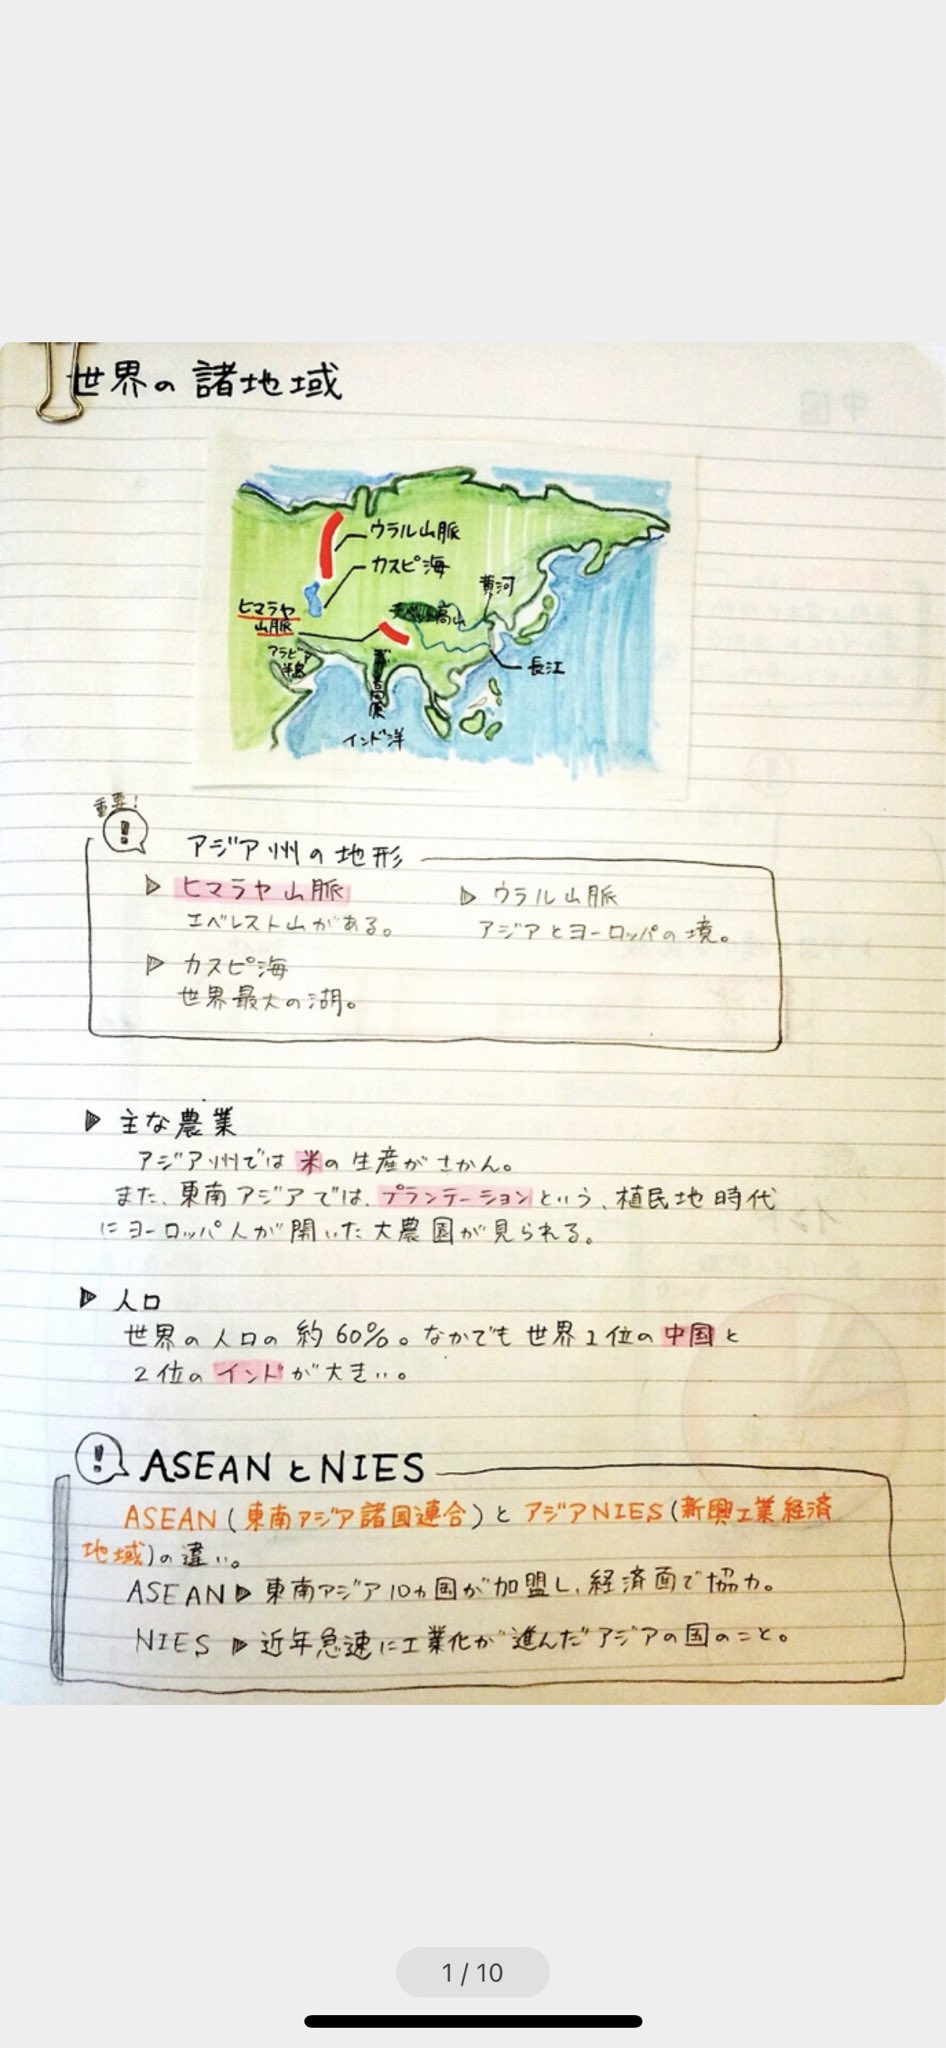 世界の諸地域
中国
ウラル山脈
カスピ海
黄河
ヒマラヤ
山脈
高山
アラビア
半島
長江
インド洋
重要!
!
アジア州の地形
▷ ヒマラヤ山脈
エベレスト山がある。
▷ ウラル山脈
アジアとヨーロッパの境。
▷ カスピ海
世界最大の湖。
▷ 主な農業
アジア州では米の生産がさかん。
また、東南アジアでは、プランテーションという、植民地時代
にヨーロッパ人が開いた大農園が見られる。
▷ 人口
世界の人口の約60%。なかでも世界1位の中国と
2位のインドが大きい。
! ASEANとNIES
ASEAN(東南アジア諸国連合)とアジアNIES(新興工業経済
地域)の違い。
ASEAN▷東南アジア10ヵ国が加盟し、経済面で協力。
NIES ▷近年急速に工業化が進んだアジアの国のこと。
1 / 10